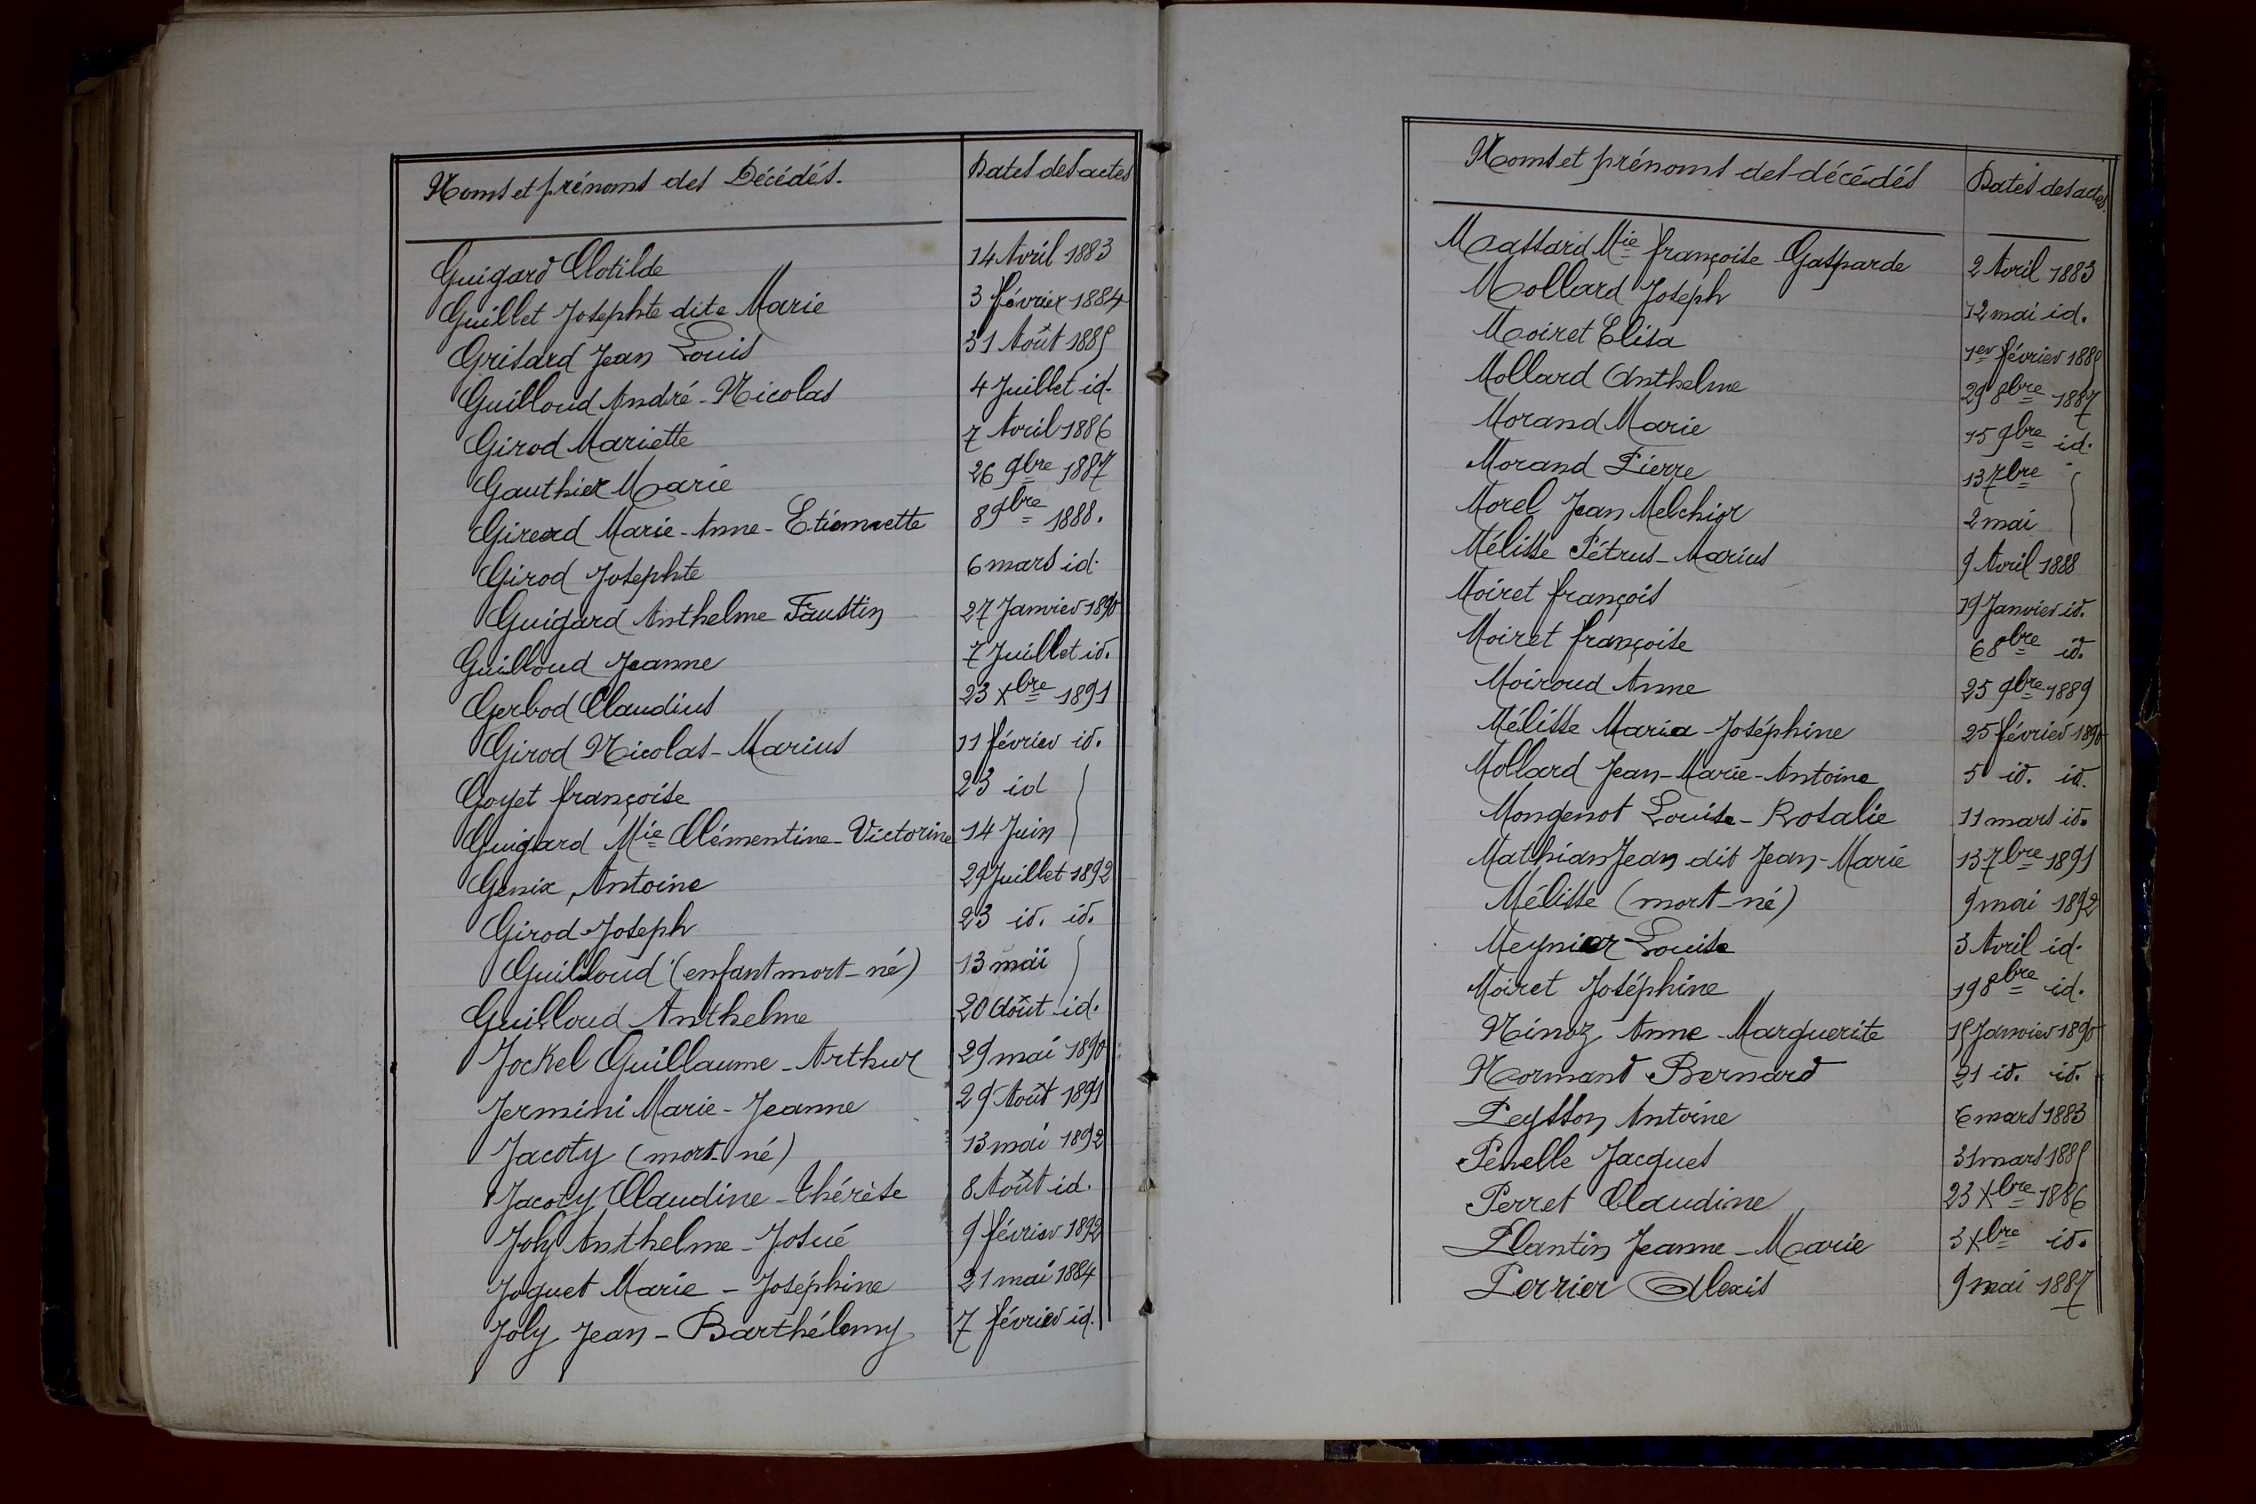 Noms et prénoms des Décédés. Dates des actes
Guigard Clotilde 14 Avril 1883
Guillet Josephte dite Marie 3 février 1884
Grisard Jean Louis 31 Août 1885
Guilloud André-Nicolas 4 Juillet id.
Girod Mariette 7 Avril 1886
Gauthier Marie 26 9bre 1887
Girerd Marie-Anne-Etiennette 8 9bre 1888.
Girod Josephte 6 mars id.
Guigard Anthelme Faustin 27 Janvier 1890
Guilloud Jeanne 7 Juillet id.
Gerbod Claudius 23 Xbre 1891
Girod Nicolas-Marius 11 février id.
Goyet françoise 23 id
Guigard Mie Clémentine-Victorine 14 Juin
Genix Antoine 29 Juillet 1892
Girod Joseph 23 id. id.
Guilloud (enfant mort-né) 13 mai
Guilloud Anthelme 20 Août id.
Jockel Guillaume-Arthur 29 mai 1890
Jermini Marie-Jeanne 29 Août 1891
Jacoty (mort-né) 13 mai 1892
Jacoty Claudine-Thérèse 8 Août id.
Joly Anthelme-Josué 9 février 1892
Joguet Marie-Joséphine 21 mai 1884
Joly Jean-Barthélemy 7 février id.
Noms et prénoms des décédés Dates des actes.
Massard Mie françoise Gasparde 2 Avril 1883
Mollard Joseph 12 mai id.
Moiret Elisa 1er février 1885
Mollard Anthelme 29 8bre 1887
Morand Marie 15 9bre id.
Morand Pierre 13 7bre
Morel Jean Melchior 2 mai
Mélisse Pétrus-Marius 9 Avril 1888
Moiret françois 19 Janvier id.
Moiret françoise 6 8bre id.
Moiroud Anne 25 9bre 1889
Mélisse Maria-Joséphine 25 février 1890
Mollard Jean-Marie-Antoine 5 id. id.
Mongenot Louise-Rosalie 11 mars id.
Mathian Jean dit Jean-Marie 13 7bre 1891
Mélisse (mort-né) 9 mai 1892
Meynier Louise 3 Avril id.
Moiret Joséphine 19 8bre id.
Ninoz Anne-Marguerite 15 Janvier 1890
Normand Bernard 21 id. id.
Peysson Antoine 6 mars 1883
Penelle Jacques 31 mars 1885
Perret Claudine 23 Xbre 1886
Plantin Jeanne-Marie 3 Xbre id.
Perrier Alexis 9 mai 1887